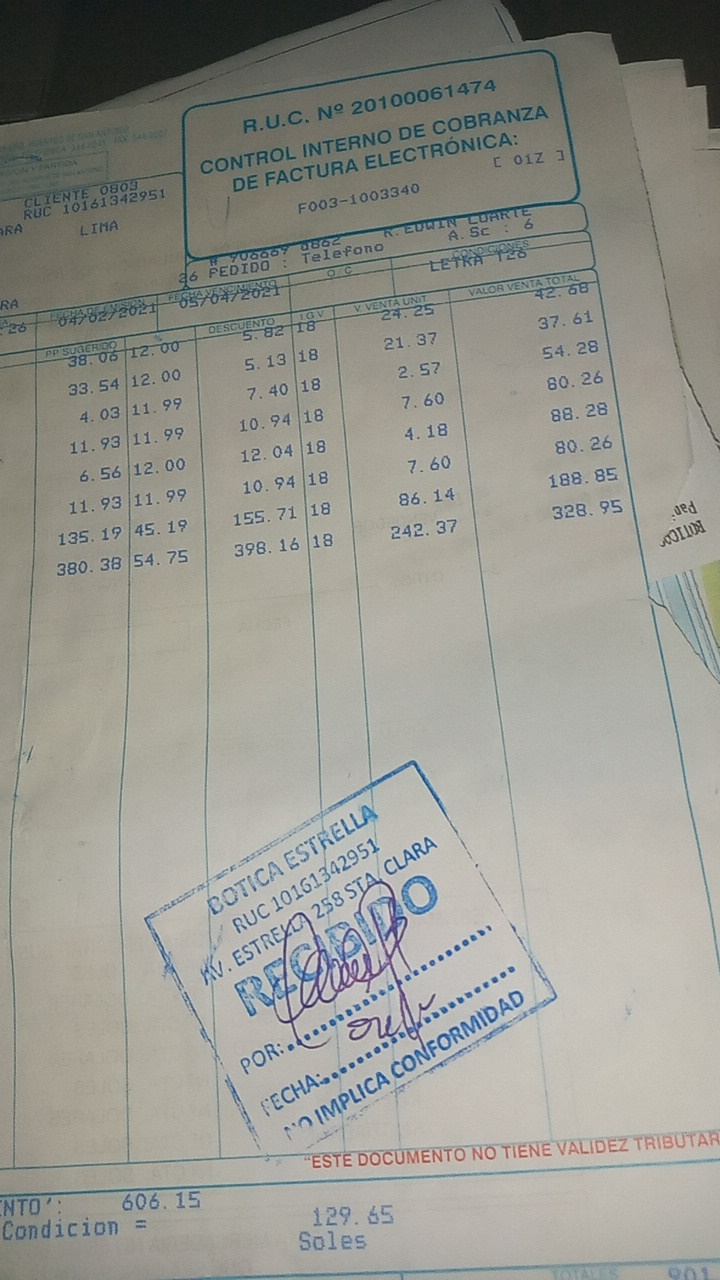 R.U.C. Nº 20100061474
CONTROL INTERNO DE COBRANZA
DE FACTURA ELECTRÓNICA:
[ 01Z ]
F003-1003340
CLIENTE 0803
RUC 10161342951
ARA LIMA
R.EDWIN
A.Sc : 6
26 PEDIDO : Telefono
O/C
CONDICIONES
LETRA
ARA
FECHA DE EMISIÓN FECHA VENCIMIENTO
.26 04/02/2021 05/04/2021
PP SUGERIDO % DESCUENTO I.G.V V. VENTA UNIT VALOR VENTA TOTAL
38.06 12.00 5.82 18 24.25 42.68
33.54 12.00 5.13 18 21.37 37.61
4.03 11.99 7.40 18 2.57 54.28
11.93 11.99 10.94 18 7.60 80.26
6.56 12.00 12.04 18 4.18 88.28
11.93 11.99 10.94 18 7.60 80.26
135.19 45.19 155.71 18 86.14 188.85
380.38 54.75 398.16 18 242.37 328.95
BOTICA ESTRELLA
RUC 10161342951
AV. ESTRELLA 258 STA. CLARA
RECIBIDO
POR:
FECHA:
NO IMPLICA CONFORMIDAD
"ESTE DOCUMENTO NO TIENE VALIDEZ TRIBUTAR
NTO': 606.15
Condicion = 129.65
Soles
TOTALES 901